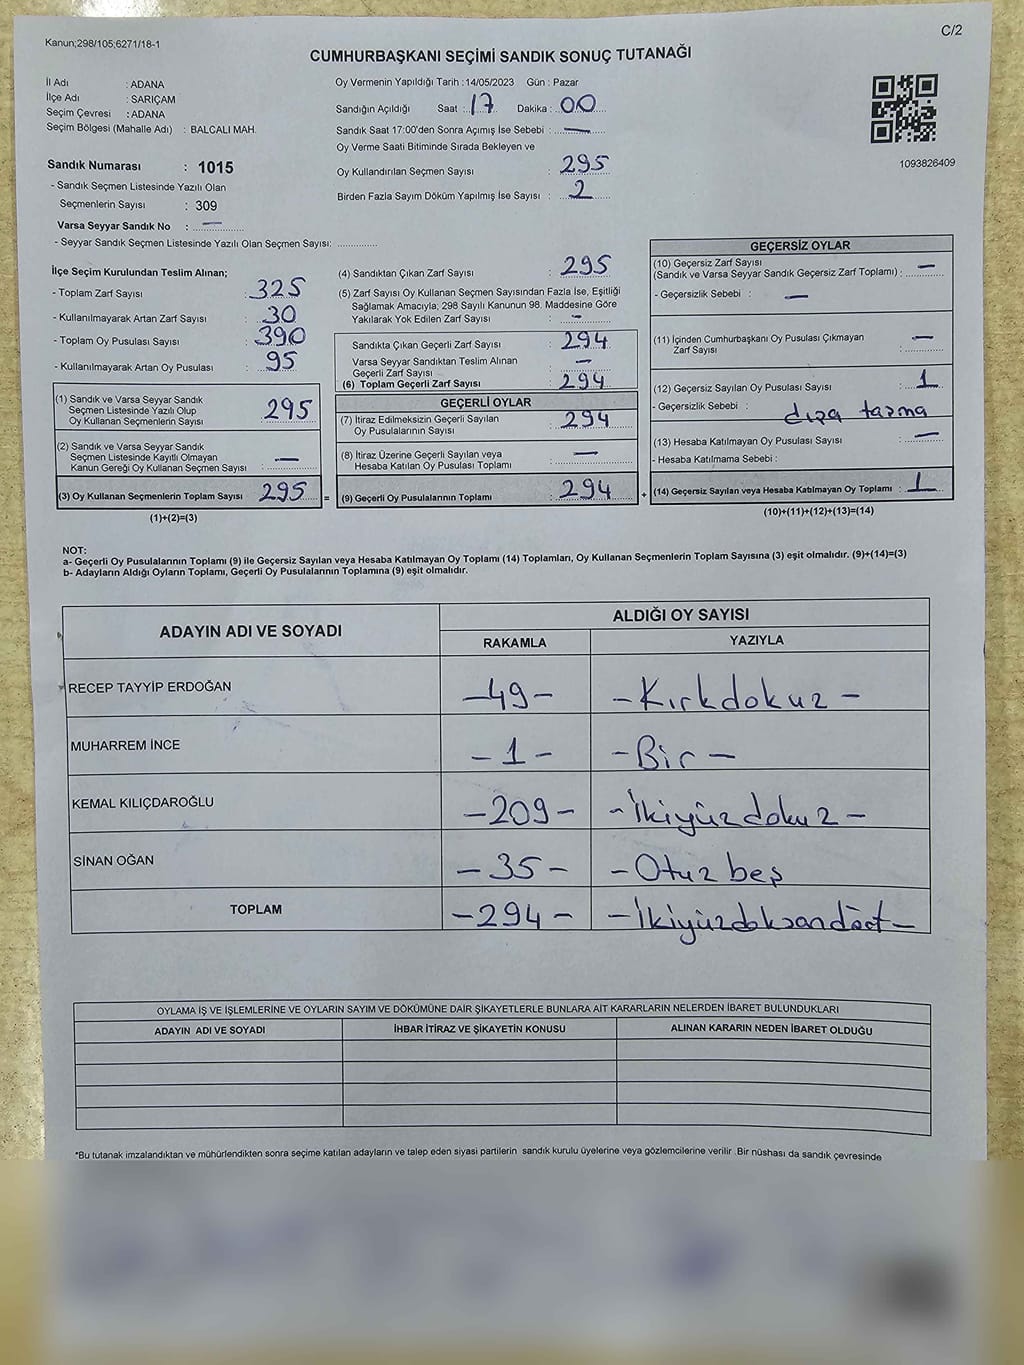 Kanun;298/105;6271/18-1
C/2
CUMHURBAŞKANI SEÇİMİ SANDIK SONUÇ TUTANAĞI
İl Adı : ADANA
İlçe Adı : SARIÇAM
Seçim Çevresi : ADANA
Seçim Bölgesi (Mahalle Adı) : BALCALI MAH.
Sandık Numarası : 1015
- Sandık Seçmen Listesinde Yazılı Olan
Seçmenlerin Sayısı : 309
Varsa Seyyar Sandık No : —
- Seyyar Sandık Seçmen Listesinde Yazılı Olan Seçmen Sayısı: ............
Oy Vermenin Yapıldığı Tarih :14/05/2023 Gün : Pazar
Sandığın Açıldığı Saat : 17 Dakika : 00
Sandık Saat 17:00'den Sonra Açımış İse Sebebi : —
Oy Verme Saati Bitiminde Sırada Bekleyen ve
Oy Kullandırılan Seçmen Sayısı : 295
Birden Fazla Sayım Döküm Yapılmış İse Sayısı : 2
1093826409
İlçe Seçim Kurulundan Teslim Alınan;
- Toplam Zarf Sayısı : 325
- Kullanılmayarak Artan Zarf Sayısı : 30
- Toplam Oy Pusulası Sayısı : 390
- Kullanılmayarak Artan Oy Pusulası : 95
(1) Sandık ve Varsa Seyyar Sandık
Seçmen Listesinde Yazılı Olup
Oy Kullanan Seçmenlerin Sayısı : 295
(2) Sandık ve Varsa Seyyar Sandık
Seçmen Listesinde Kayıtlı Olmayan
Kanun Gereği Oy Kullanan Seçmen Sayısı : —
(3) Oy Kullanan Seçmenlerin Toplam Sayısı : 295 =
(1)+(2)=(3)
(4) Sandıktan Çıkan Zarf Sayısı : 295
(5) Zarf Sayısı Oy Kullanan Seçmen Sayısından Fazla İse, Eşitliği
Sağlamak Amacıyla; 298 Sayılı Kanunun 98. Maddesine Göre
Yakılarak Yok Edilen Zarf Sayısı : -
Sandıkta Çıkan Geçerli Zarf Sayısı : 294
Varsa Seyyar Sandıktan Teslim Alınan
Geçerli Zarf Sayısı : —
(6) Toplam Geçerli Zarf Sayısı : 294
GEÇERLİ OYLAR
(7) İtiraz Edilmeksizin Geçerli Sayılan
Oy Pusulalarının Sayısı : 294
(8) İtiraz Üzerine Geçerli Sayılan veya
Hesaba Katılan Oy Pusulası Toplamı : —
(9) Geçerli Oy Pusulalarının Toplamı : 294 +
GEÇERSİZ OYLAR
(10) Geçersiz Zarf Sayısı
(Sandık ve Varsa Seyyar Sandık Geçersiz Zarf Toplamı) : —
- Geçersizlik Sebebi : —
(11) İçinden Cumhurbaşkanı Oy Pusulası Çıkmayan
Zarf Sayısı : —
(12) Geçersiz Sayılan Oy Pusulası Sayısı : 1
- Geçersizlik Sebebi : dışa taşma
(13) Hesaba Katılmayan Oy Pusulası Sayısı : —
- Hesaba Katılmama Sebebi :
(14) Geçersiz Sayılan veya Hesaba Katılmayan Oy Toplamı : 1
(10)+(11)+(12)+(13)=(14)
NOT:
a- Geçerli Oy Pusulalarının Toplamı (9) ile Geçersiz Sayılan veya Hesaba Katılmayan Oy Toplamı (14) Toplamları, Oy Kullanan Seçmenlerin Toplam Sayısına (3) eşit olmalıdır. (9)+(14)=(3)
b- Adayların Aldığı Oyların Toplamı, Geçerli Oy Pusulalarının Toplamına (9) eşit olmalıdır.
ADAYIN ADI VE SOYADI ALDIĞI OY SAYISI
RAKAMLA YAZIYLA
RECEP TAYYİP ERDOĞAN -49- -Kırkdokuz-
MUHARREM İNCE -1- -Bir-
KEMAL KILIÇDAROĞLU -209- -İkiyüzdokuz-
SİNAN OĞAN -35- -Otuzbeş
TOPLAM -294- -İkiyüzdoksandört-
OYLAMA İŞ VE İŞLEMLERİNE VE OYLARIN SAYIM VE DÖKÜMÜNE DAİR ŞİKAYETLERLE BUNLARA AİT KARARLARIN NELERDEN İBARET BULUNDUKLARI
ADAYIN ADI VE SOYADI İHBAR İTİRAZ VE ŞİKAYETİN KONUSU ALINAN KARARIN NEDEN İBARET OLDUĞU
*Bu tutanak imzalandıktan ve mühürlendikten sonra seçime katılan adayların ve talep eden siyasi partilerin sandık kurulu üyelerine veya gözlemcilerine verilir .Bir nüshası da sandık çevresinde